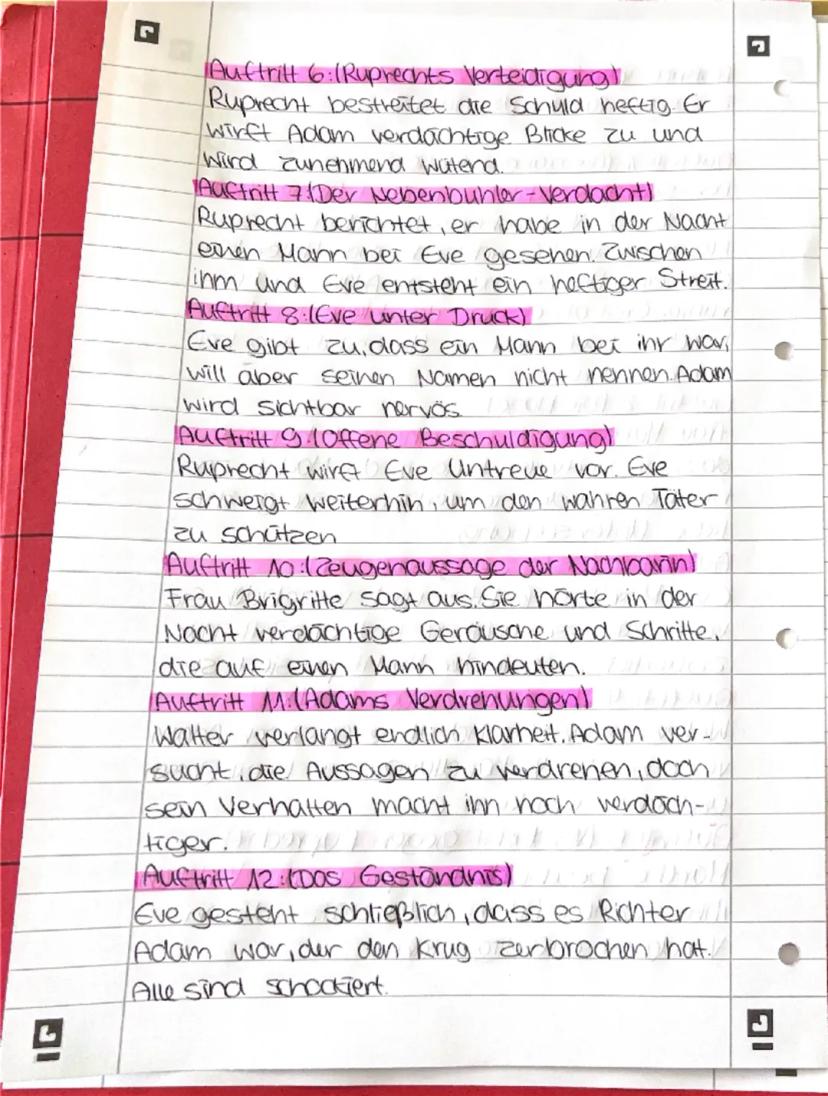 Auftritt 6:(Ruprechts Verteidigung)
Ruprecht bestreitet die Schuld heftig. Er
wirft Adam verdächtige Blicke zu und
wird zunehmend wütend.
Auftritt 7:(Der Nebenbuhler-Verdacht)
Ruprecht berichtet, er habe in der Nacht
einen Mann bei Eve gesehen. Zwischen
ihm und Eve entsteht ein heftiger Streit.
Auftritt 8:(Eve unter Druck)
Eve gibt zu, dass ein Mann bei ihr war,
will aber seinen Namen nicht nennen. Adam
wird sichtbar nervös.
Auftritt 9:(Offene Beschuldigung)
Ruprecht wirft Eve Untreue vor. Eve
schweigt weiterhin, um den wahren Täter
zu schützen
Auftritt 10:(Zeugenaussage der Nachbarin)
Frau Brigritte sagt aus. Sie hörte in der
Nacht verdächtige Geräusche und Schritte,
die auf einen Mann hindeuten.
Auftritt 11:(Adams Verdrehungen)
Walter verlangt endlich Klarheit. Adam ver-
sucht, die Aussagen zu verdrehen, doch
sein Verhalten macht ihn noch verdäch-
tiger.
Auftritt 12:(Das Geständnis)
Eve gesteht schließlich, dass es Richter
Adam war, der den Krug zerbrochen hat.
Alle sind schockiert.